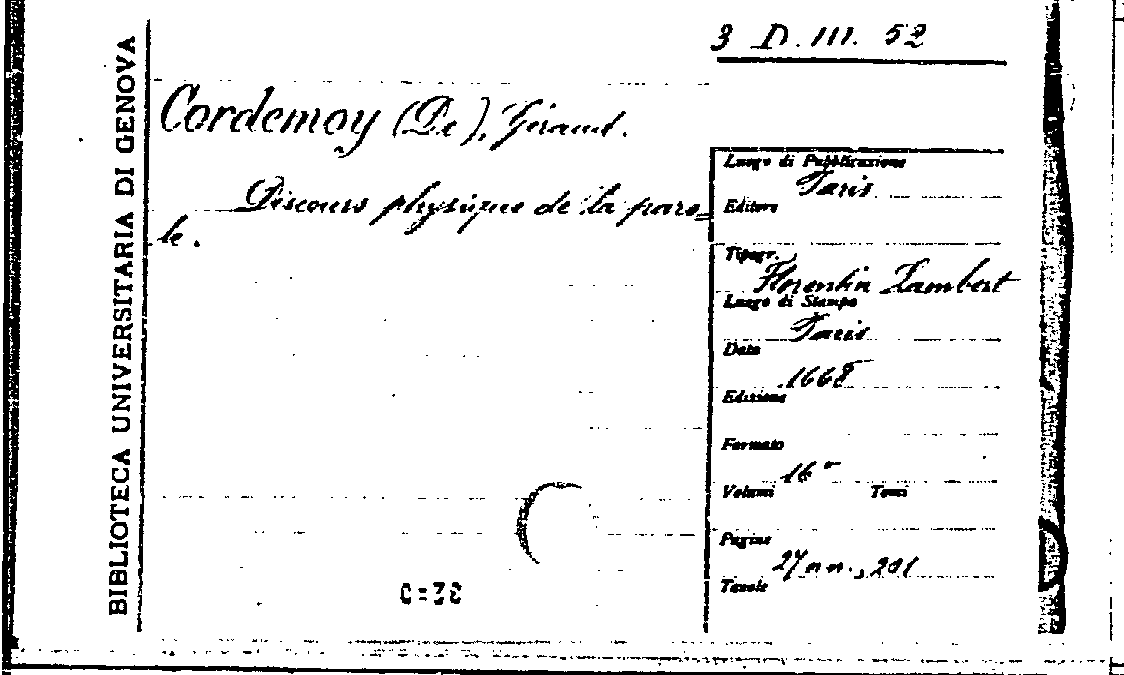 BIBLIOTECA UNIVERSITARIA DI GENOVA
3 D. III. 52
Cordemoy (De), Géraud.
Discours physique de la paro=
le.
Luogo di Pubblicazione
Paris
Editore
Tipogr.
Florentin Lambert
Luogo di Stampa
Paris
Data
1668
Edizione
Formato
16°
Volumi Tomi
Pagine
27 nn., 201
Tavole